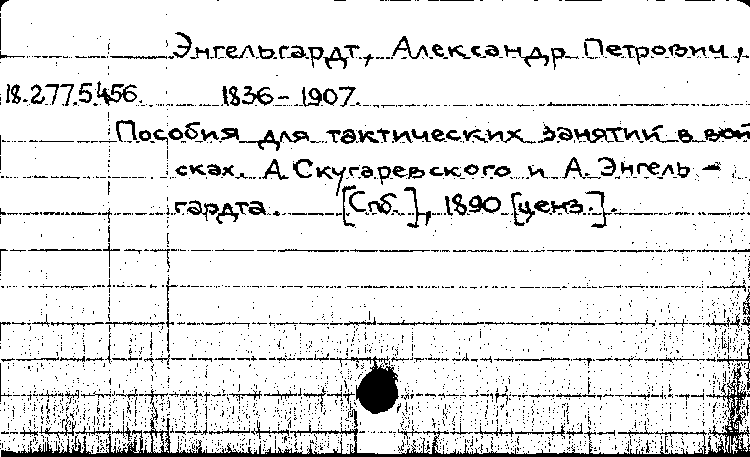 Энгельгардт, Александр Петрович,
18.277.5.456. 1836-1907.
Пособия для тактических занятий в вой
сках. А. Скугаревского и А. Энгель-
гардта. [Спб.], 1890 [ценз.].